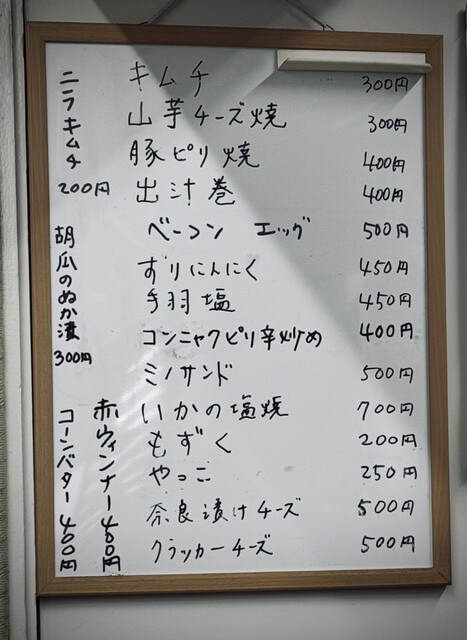 キムチ 300円
山芋チーズ焼 300円
豚ピリ焼 400円
出汁巻 400円
ベーコン エッグ 500円
すりにんにく 450円
手羽塩 450円
コンニャクピリ辛炒め 400円
ミノサンド 500円
いかの塩焼 700円
もずく 200円
やっこ 250円
奈良漬けチーズ 500円
クラッカーチーズ 500円
ニラキムチ
200円
胡瓜のぬか漬
300円
赤ウィンナー400円
コーンバター400円